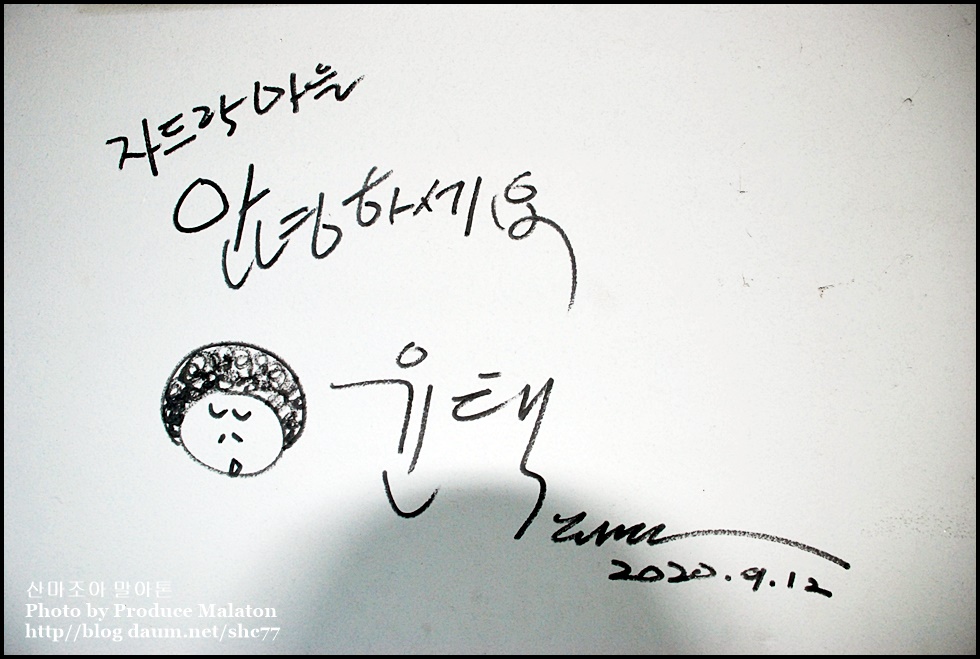 자드락마을
안녕하세요
윤택
2020.9.12
산마조아 말아톤
Photo by Produce Malaton
http//blog daum.net/shc77